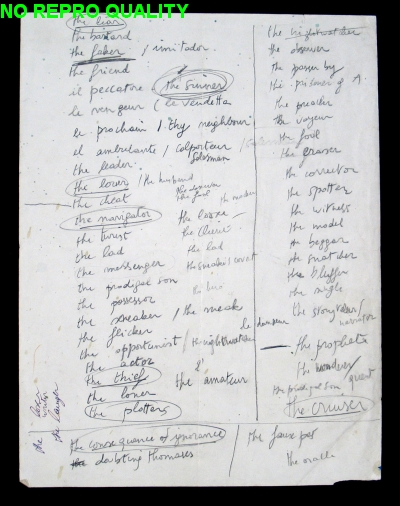 NO REPRO QUALITY
the liar
the bastard
the faker / imitador
the friend
il peccatore the sinner
le vengeur ( la vendetta
le prochain / thy neighbour
el ambulante / colporteur /
salesman
the leader
the lover / the husband
the cheat the fool
the navigator the looxe
the twist the client
the lad the lad
the messenger the sneaker / covert
the prodigal son
the possessor the hero
the sneaker / the sneak
the flicker
the opportunist / the nightwatcher
the actor
the thief the amateur
the loner
the plotters
the consequence of ignorance
the doubting thomases
the nightwatcher
the observer
the passer by
the prisoner of A
the preacher
the voyeur
the fool
the eraser
the corrector
the spotter
the witness
the model
the beggar
the snatcher
the bluffer
the single
the storyteller /
narrator
le danseur
the prophets
the wonderer
the prodigal son
the cruiser
the faux pas
the oracle